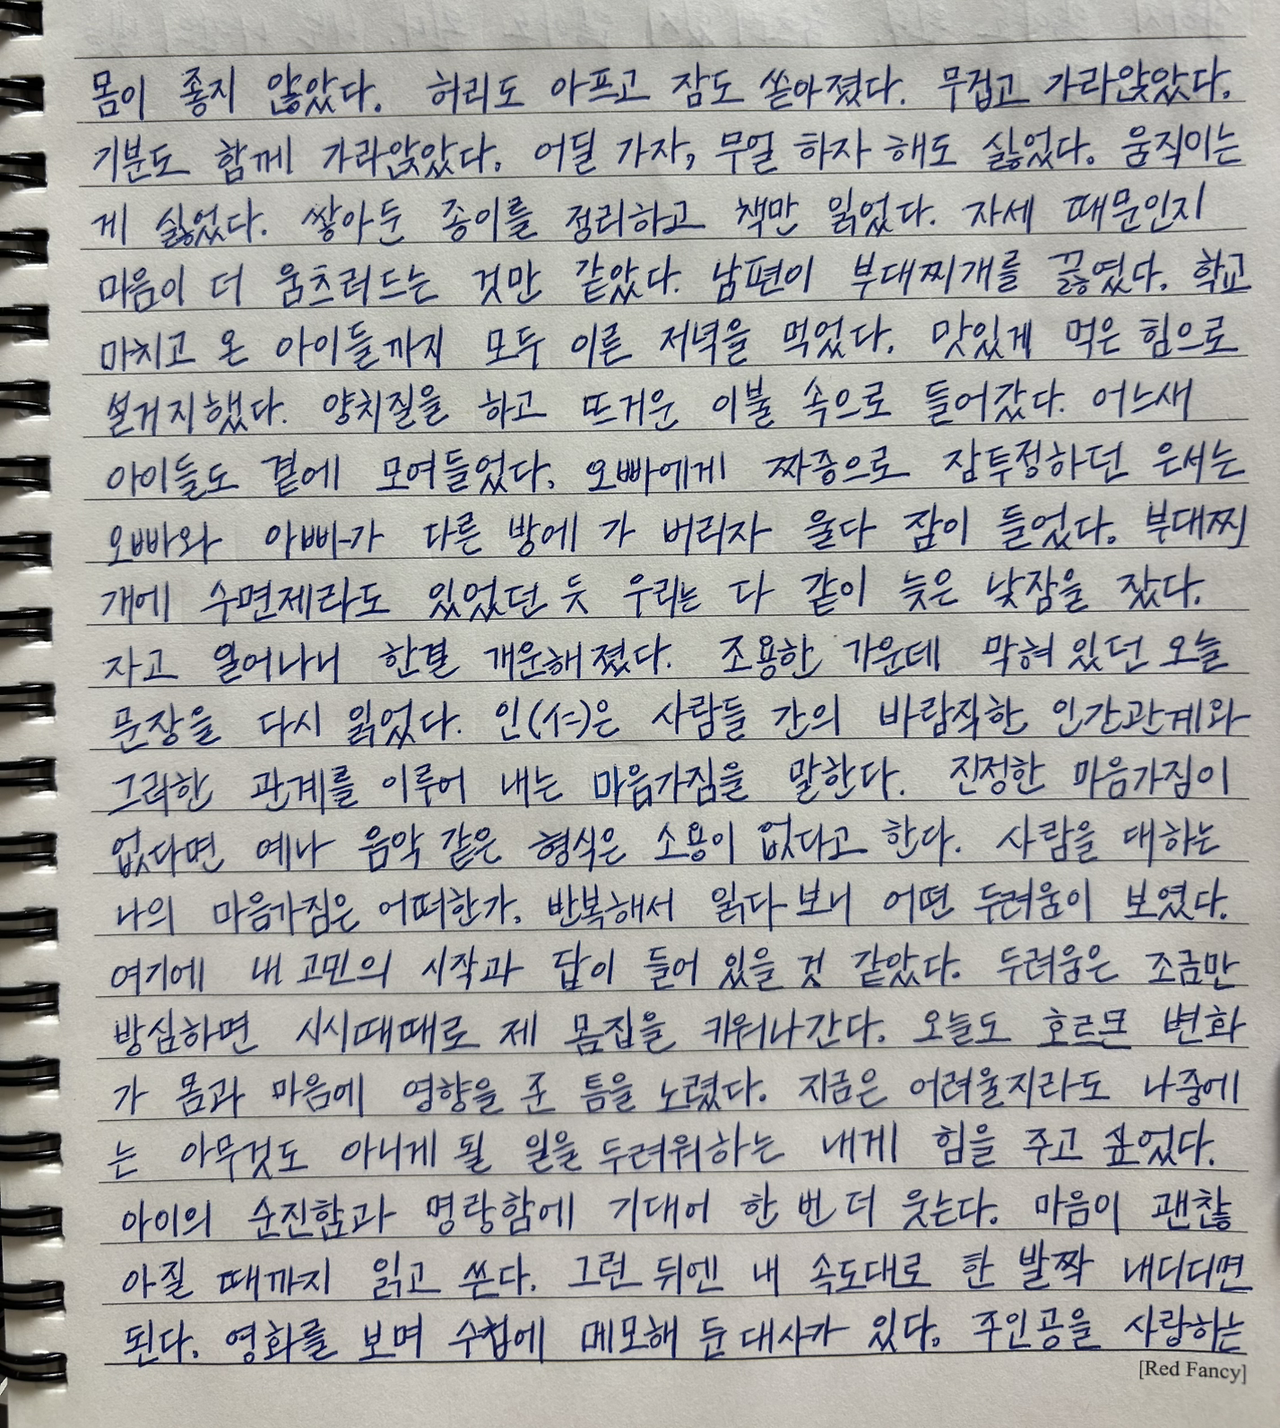 몸이 좋지 않았다. 허리도 아프고 잠도 쏟아졌다. 무겁고 가라앉았다.
기분도 함께 가라앉았다. 어딜 가자, 무얼 하자 해도 싫었다. 움직이는
게 싫었다. 쌓아둔 종이를 정리하고 책만 읽었다. 자세 때문인지
마음이 더 움츠러드는 것만 같았다. 남편이 부대찌개를 끓였다. 학교
마치고 온 아이들까지 모두 이른 저녁을 먹었다. 맛있게 먹은 힘으로
설거지했다. 양치질을 하고 뜨거운 이불 속으로 들어갔다. 어느새
아이들도 곁에 모여들었다. 오빠에게 짜증으로 잠투정하던 은서는
오빠와 아빠가 다른 방에 가 버리자 울다 잠이 들었다. 부대찌
개에 수면제라도 있었던 듯 우리는 다 같이 늦은 낮잠을 잤다.
자고 일어나니 한결 개운해졌다. 조용한 가운데 막혀 있던 오늘
문장을 다시 읽었다. 인(仁)은 사람들 간의 바람직한 인간관계와
그러한 관계를 이루어 내는 마음가짐을 말한다. 진정한 마음가짐이
없다면 예나 음악 같은 형식은 소용이 없다고 한다. 사람을 대하는
나의 마음가짐은 어떠한가. 반복해서 읽다 보니 어떤 두려움이 보였다.
여기에 내 고민의 시작과 답이 들어 있을 것 같았다. 두려움은 조금만
방심하면 시시때때로 제 몸집을 키워나간다. 오늘도 호르몬 변화
가 몸과 마음에 영향을 준 틈을 노렸다. 지금은 어려울지라도 나중에
는 아무것도 아니게 될 일을 두려워하는 내게 힘을 주고 싶었다.
아이의 순진함과 명랑함에 기대어 한 번 더 웃는다. 마음이 괜찮
아질 때까지 읽고 쓴다. 그런 뒤엔 내 속도대로 한 발짝 내디디면
된다. 영화를 보며 수첩에 메모해 둔 대사가 있다. 주인공을 사랑하는
[Red Fancy]